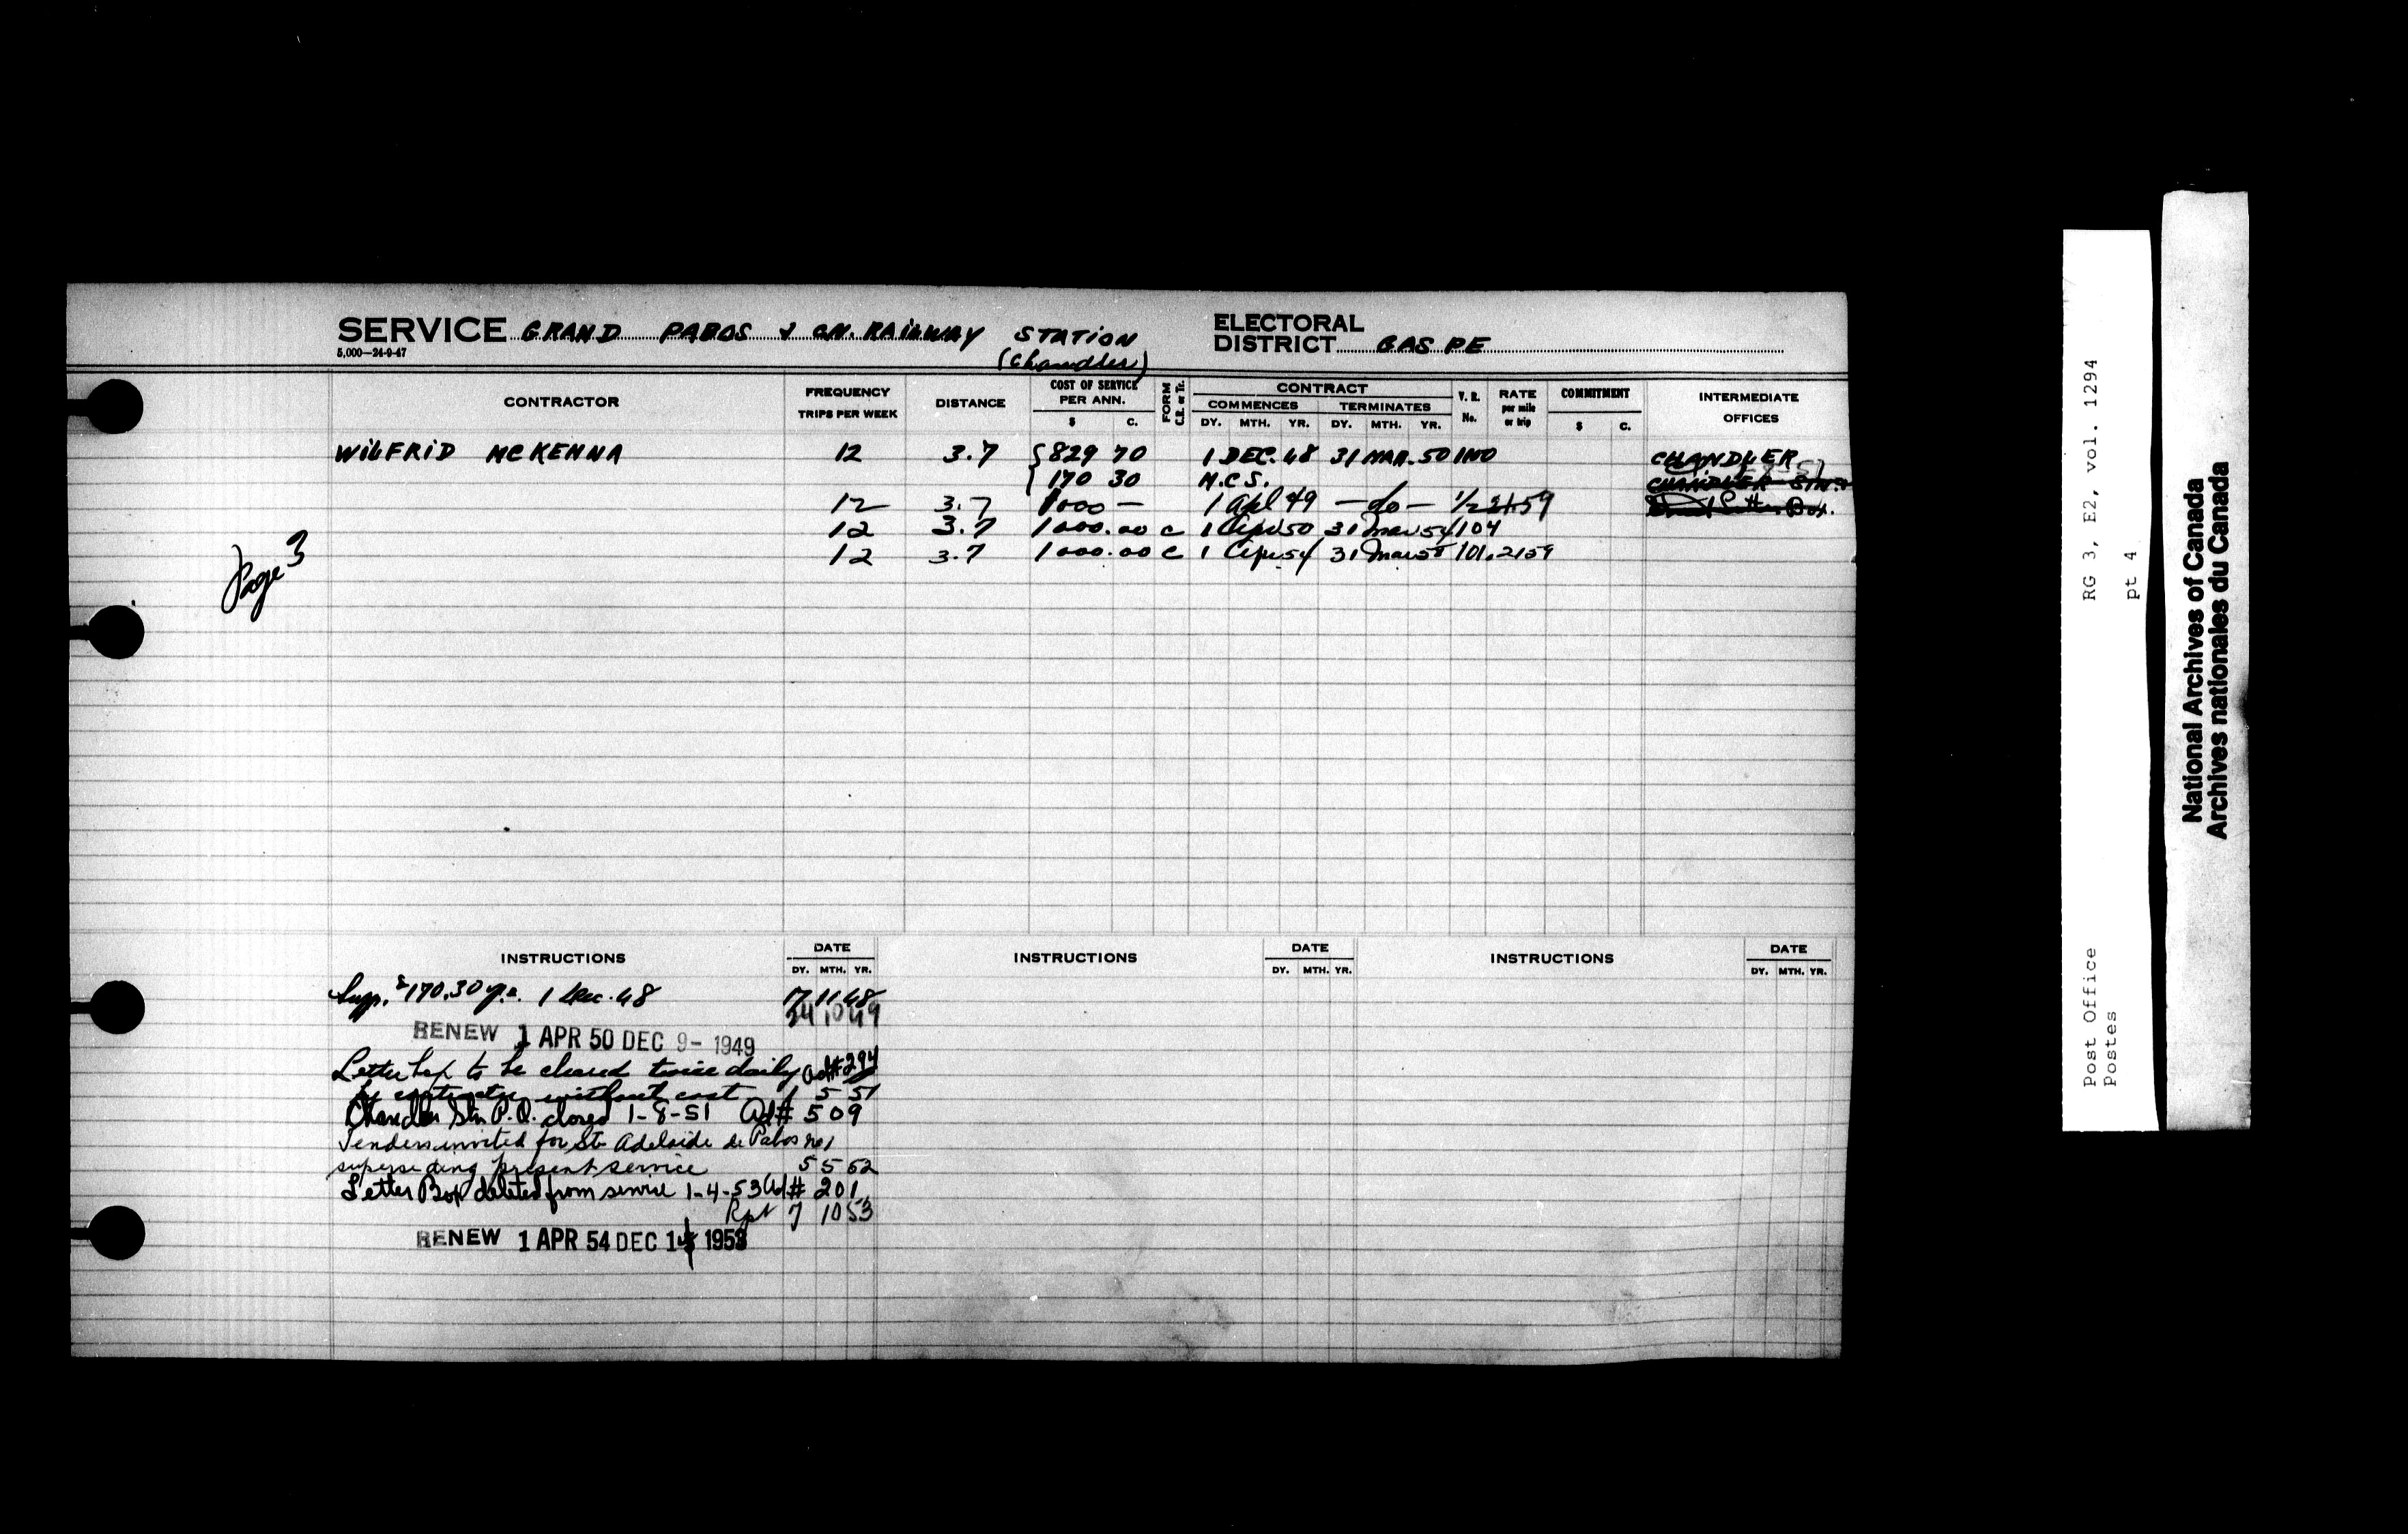 SERVICE GRAND PABOS & CN. RAILWAY STATION
(Chandler)
5,000—24-9-47
ELECTORAL
DISTRICT GASPE
CONTRACTOR
FREQUENCY
TRIPS PER WEEK
DISTANCE
COST OF SERVICE
PER ANN.
$ C.
FORM
C.R. or Tr.
CONTRACT
COMMENCES TERMINATES
DY. MTH. YR. DY. MTH. YR.
V. R.
No.
RATE
per mile
or trip
COMMITMENT
$ C.
INTERMEDIATE
OFFICES
WILFRID MCKENNA 12 3.7 829 70 1 DEC. 48 31 MAR. 50 CHANDLER
170 30 M.C.S. CHANDLER STN.
12 3.7 1000 — 1 Apl 49 — do — 1/2 2159 Letter Box.
12 3.7 1000.00 c 1 Apr 50 31 Mar 54 104
12 3.7 1000.00 c 1 Apr 54 31 Mar 58 101 .2159
Page 3
INSTRUCTIONS DATE
DY. MTH. YR.
INSTRUCTIONS DATE
DY. MTH. YR.
INSTRUCTIONS DATE
DY. MTH. YR.
Supp. $170.30 p.a. 1 Dec. 48 17 11 48
24 10 49
RENEW 1 APR 50 DEC 9- 1949
Letter box to be cleared twice daily Ad# 294
by contractor without cost 1 5 51
Chandler Stn P.O. closed 1-8-51 Ad# 509
Tenders invited for Ste Adelaide de Pabos no 1
superseding present service 5 5 52
Letter Box deleted from service 1-4-53 Ad# 201
Rpt 7 10 53
RENEW 1 APR 54 DEC 14 1953
RG 3, E2, vol. 1294
pt 4
Post Office
Postes
National Archives of Canada
Archives nationales du Canada